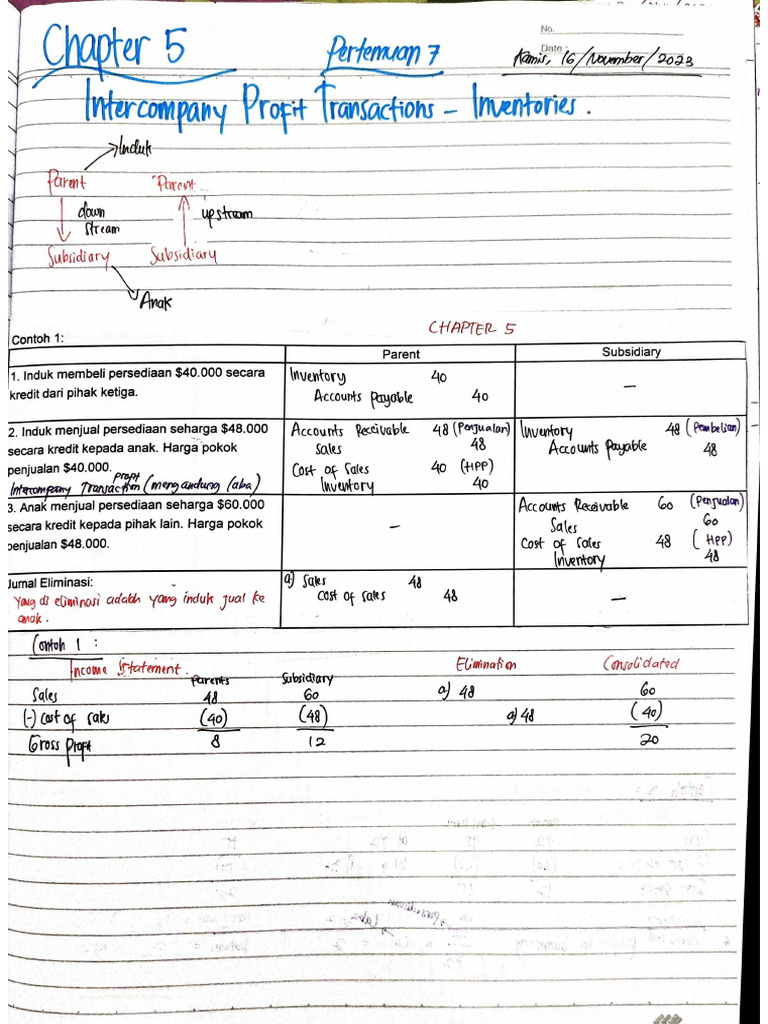 No.
Date :
Chapter 5
Pertemuan 7
Kamis, 16/November/2023
Intercompany Profit Transactions – Inventories.
Induk
Parent Parent
down stream
upstream
Subsidiary Subsidiary
Anak
CHAPTER 5
Contoh 1:
Parent Subsidiary
1. Induk membeli persediaan $40.000 secara
kredit dari pihak ketiga.
Inventory 40
Accounts Payable 40
–
2. Induk menjual persediaan seharga $48.000
secara kredit kepada anak. Harga pokok
penjualan $40.000.
Intercompany Profit Transaction (mengandung laba)
Accounts Receivable 48 (Penjualan)
Sales 48
Cost of Sales 40 (HPP)
Inventory 40
Inventory 48 (Pembelian)
Accounts Payable 48
3. Anak menjual persediaan seharga $60.000
secara kredit kepada pihak lain. Harga pokok
penjualan $48.000.
–
Accounts Receivable 60 (Penjualan)
Sales 60
Cost of Sales 48 (HPP)
Inventory 48
Jurnal Eliminasi:
Yang di eliminasi adalah yang induk jual ke
anak.
a) Sales 48
Cost of sales 48
–
Contoh 1 :
Income Statement. Parents Subsidiary Elimination Consolidated
Sales 48 60 a) 48 60
(-) Cost of sales (40) (48) a) 48 (40)
Gross Profit 8 12 20